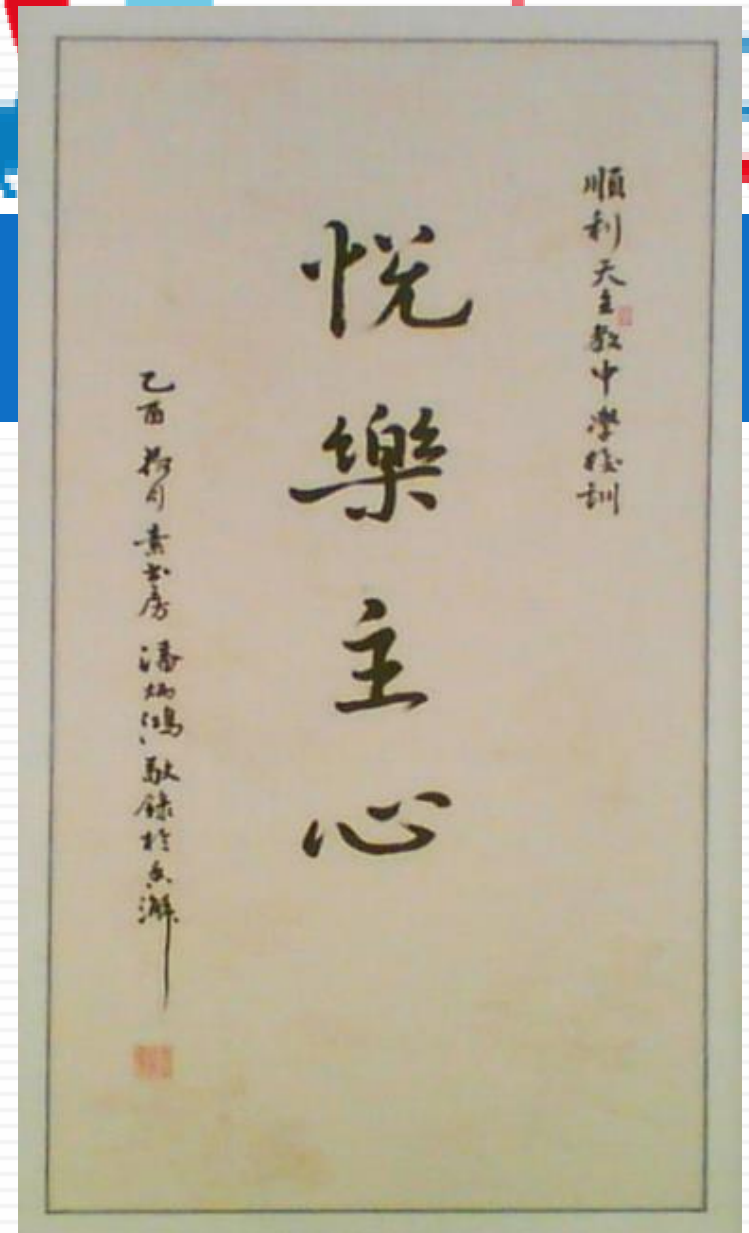 順利天主教中學校訓
悅樂主心
乙酉荷月素書房潘炳鴻敬錄於香海